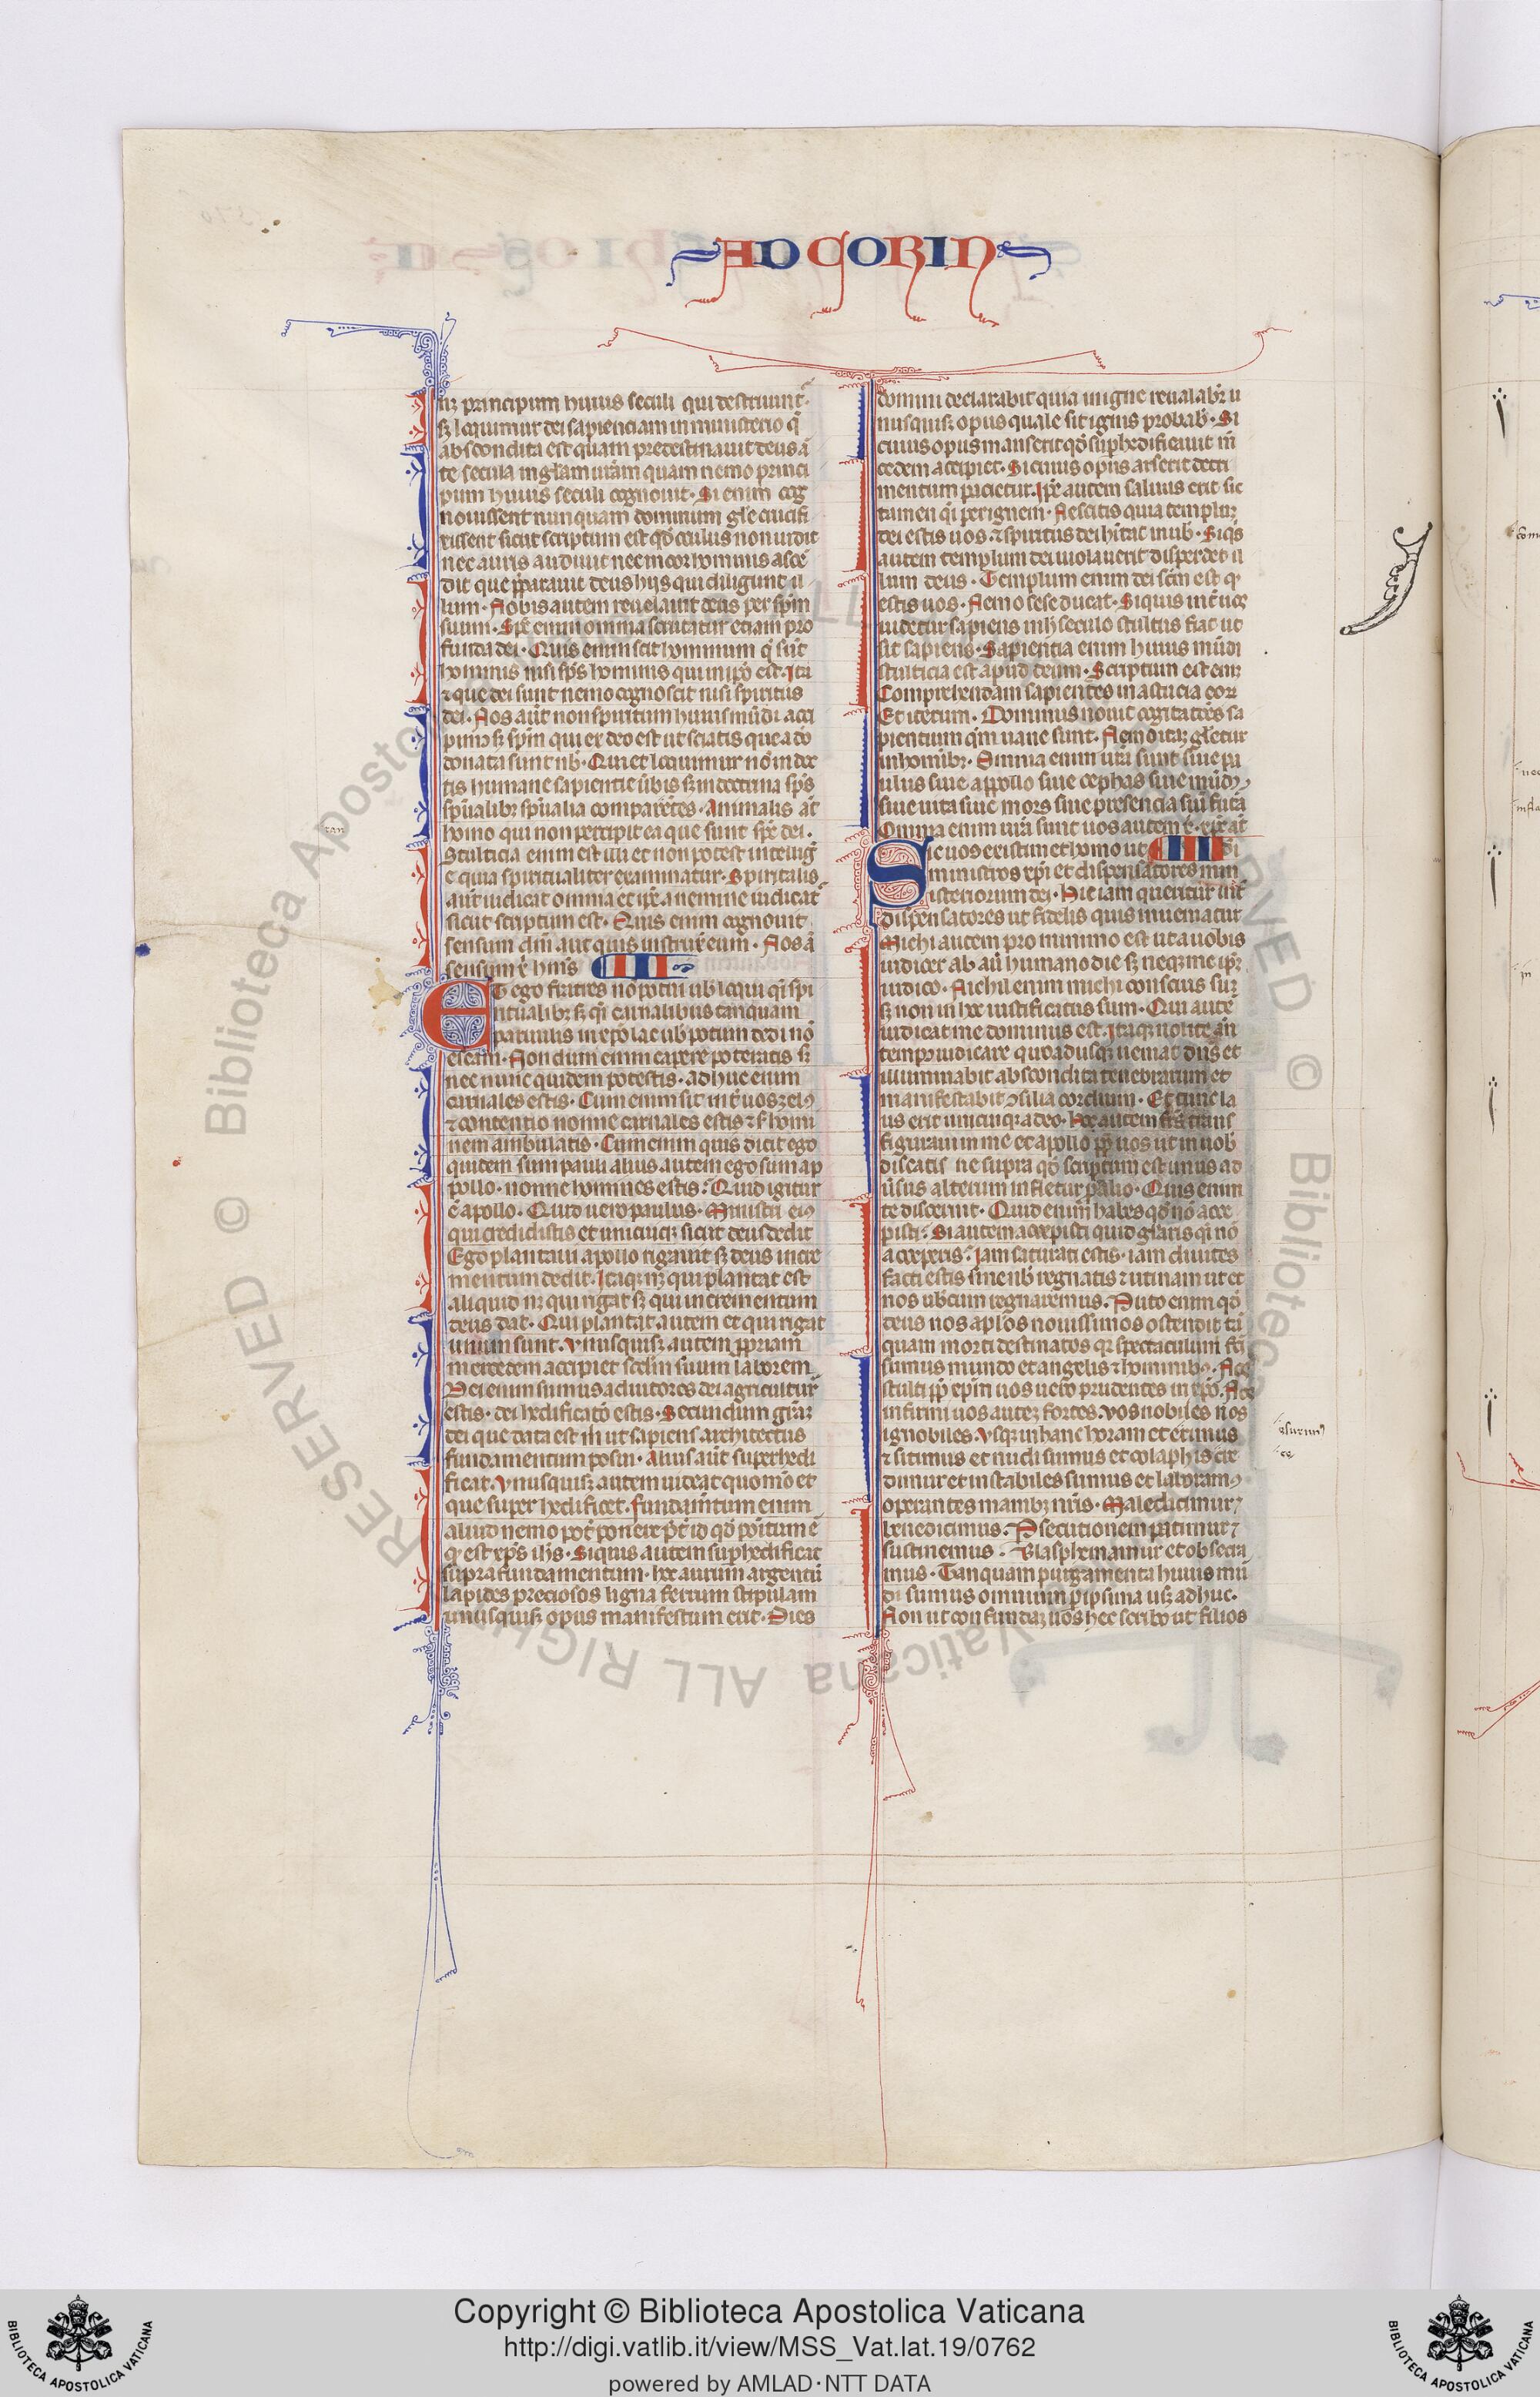 AD CORIN
nꝫ principum huius seculi qui destruunt̉·
sꝫ loquimur dei sapienciam in misterio q̄
abscondita est quam predestinauit deus ā
te secula in glāam nr̄am quam nemo princi
pum huius seculi cognouit· Si enim cog
nouissent nunquam dominum glē crucifi
xissent sicut scriptum est qd̓ oculus non uidit
nec auris audiuit nec in cor hominis ascē
dit que p̄parauit deus hijs qui diligunt il
lum· Nobis autem reuelauit deus per sp̄m
suum· Sp̄c enim omnia scrutatur eciam pro
funda dei· Quis enim scit hominum q̄ sūt
hominis nisi sp̄s hominis qui in ip̄o est· Ita
⁊ que dei sunt nemo cognoscit nisi spiritus
dei· Nos aūt non spiritum huius mūdi acce
pimꝰ sꝫ sp̄m qui ex deo est ut sciatis que a dō
donata sunt nb̓· Que et loquimur nō in doc
tis humane sapientie ūbis sꝫ in doctrina sp̄s
sp̄ualibꝫ sp̄ualia comparātes· Animalis aūt
homo qui non percipit ea que sunt sp̄c dei·
Stulticia enim est illi et non potest intellig̓
e quia spiritualiter examinatur· Spiritalis
aūt iudicat omnia et ip̄e a nemine iudicat̉
sicut scriptum est· Quis enim cognouit
sensum dn̄i aut quis instrux̓ eum· Nos aū
sensum x̄ hēmꝰ III
ET ego fratres nō potui uob̓ loqui qᵃi spi
ritualibꝫ sꝫ qᵃi carnalibus tanquam
paruulis in xp̄o lac uob̓ potum dedi nō
escam· Non dum enim capere poteratis sꝫ
nec nunc quidem potestis· ad huc enim
carnales estis· Cum enim sit int̓ uos zelꝰ
⁊ contentio nonne carnales estis ⁊ s̄ homi
nem ambulatis· Cum enim quis dicit ego
quidem sum pauli alius autem ego sum ap
pollo· nonne homines estis· Quid igitur
ē apollo· Quid uero paulus· Ministri eiꝰ
qui credidistis et unicuiqꝫ sicut deus dedit
Ego plantaui apollo rigauit sꝫ deus incre
mentum dedit· Itaqꝫ nꝫ qui plantat est
aliquid nꝫ qui rigat sꝫ qui incrementum
deus dat· Qui plantat autem et qui rigat
unum sunt· Vnusquisqꝫ autem p̄priam
mercedem accipiet scd̄m suum laborem
Dei enim sumus adiutores dei agricultur̓
estis· dei hedificatō estis· Secundum grām
dei que data est m̄ ut sapiens architectus
fundamentum posui· Alius aūt superhedi
ficat· Vnusquisqꝫ autem uideat quomō et
que super hedificet· fundam̄tum enim
aliud nemo pōt ponere p̄t̓ id qd̓ positum ē
q̓ est xp̄s ih̄s· Siquis autem suphedificat
supra fundamentum· hoc aurum argentū
lapides preciosos ligna ferrum stipulam
unusquisqꝫ opus manifestum erit· Dies
domini declarabit quia in igne reualabit̉ u
nusquisqꝫ opus quale sit ignis probab̓· Si
cuius opus manserit qd̓ suphedificauit m̄
cedem accipiet· Si cuius opus arserit detri
mentum pacietur· Ip̄e autem saluus erit sic
tamen qᵃi per ignem· Nescitis quia templum
dei estis uos· ⁊ spiritus dei hitat in uob̓· Siqⁱs
autem templum dei uiolauerit disperdet il
lum deus· Templum enim dei sc̄m est q̓
estis uos· Nemo se se ducat· Si quis int̓ uos
uidetur sapiens in h̓ seculo stultus fiat ut
sit sapiens· Sapientia enim huius mūdi
stulticia est apud deum· Scriptum est enim
Comprehendam sapientes in astucia eoꝝ
Et iterum· Dominus nouit cogitatiōes sa
pientium qm̄ uane sunt· Nemo itaqꝫ glīetur
in hominibꝫ· Omnia enim ur̄a sunt siue pa
ulus siue appollo siue cephas siue mūdꝰ
siue uita siue mors siue presencia siu̓ fut̓a
Omnia enim ur̄a sunt uos autem x̄· xp̄c aūt
Sic uos existimet homo ut IIII di
ministros xp̄i et dispensatores min
isteriorum dei· Hic iam queritur int̓
dispensatores ut fidelis quis inueniatur
Michi autem pro minimo est ut a uobis
iudicer ab aū humano die sꝫ neqꝫ me ip̄m
iudico· Nichil enim michi conscius sum
sꝫ non in hoc iustificatus sum· Qui autē
iudicat me dominus est· Itaqꝫ nolite an̄
tempꝰ iudicare quoadusqꝫ ueniat dn̄s et
illuminabit abscondita tenebrarum et
manifestabit ꝯsilia cordium· Et tunc la
us erit unicuiqꝫ a deo· Hoc autem fr̄s trans
figuraui in me et apollo pp̄ uos ut in nob̓
discatis ne supra qd̓ scriptum est unus ad
ūsus alterum infletur p̄ alio· Quis enim
te discernit· Quid enim habes qd̓ nō acce
pisti· Si autem accepisti quid glīaris qᵃi nō
acceperis· Jam saturati estis· iam diuites
facti estis sine nb̓ regnatis ⁊ utinam ut et
nos uob̓cum regnaremus· Puto enim qd̓
deus nos apl̄os nouissimos ostendit tā
quam morti destinatos qꝛ spectaculum fc̄i
sumus mundo et angelis ⁊ hominibꝰ· Nos
stulti pp̄ xp̄m uos uero prudentes in xp̄o· Nos
infirmi uos autem fortes· uos nobiles nos
ignobiles· Vsqꝫ in hanc horam et
⁊ sitimus et nudi sumus et colaphis ce
dimur et instabiles sumus et laboramꝰ
operantes manibꝫ nr̄is· Maledicimur ⁊
benedicimus· Psecutionem patimur ⁊
sustinemus· Blasphemamur et obsecra
mus· Tanquam purgamenta huius mū
di sumus omnium pipsima usqꝫ adhuc·
Non ut confundam uos hec scribo ut filios
Copyright © Biblioteca Apostolica Vaticana
http://digi.vatlib.it/view/MSS_Vat.lat.19/0762
powered by AMLAD·NTT DATA
BIBLIOTECA APOSTOLICA VATICANA
BIBLIOTECA APOSTOLICA VATICANA